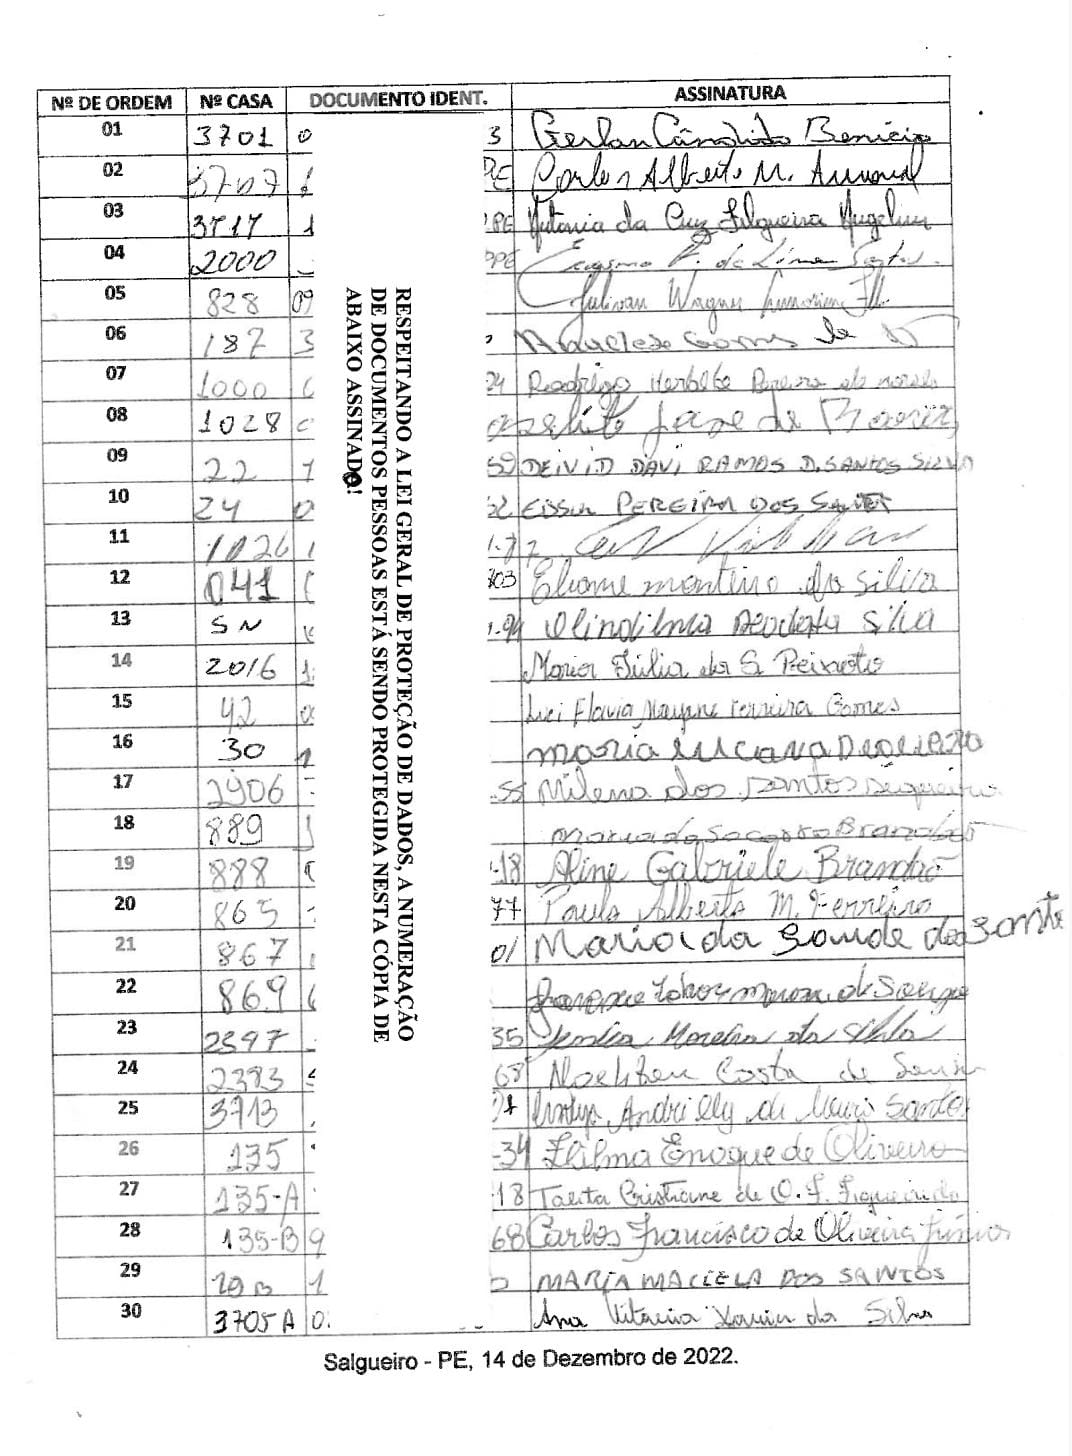 Nº DE ORDEM Nº CASA DOCUMENTO IDENT. ASSINATURA
01 3701 0 3 Gerlan Cândido Benício
02 3707 PE Carlos Alberto M. Amaral
03 3717 1 PE Antonia da Cruz Filgueira Angelim
04 2000 PPE de Lima Santos
05 828 09 Julivan Wagner
06 187 3 Gomes de
07 1000 24 Rodrigo Herbete Pereira de
08 1028 José de
09 22 7 59 DEIVID DAVI RAMOS D. SANTOS SILVA
10 24 0 PEREIRA DOS
11 1026
12 041 303 Eliane monteiro da silva
13 SN 1.94 Olindilma Deodata Silva
14 2016 1 Maria Júlia da S. Peixoto
15 42 Luci Flavia Mayane Ferreira Gomes
16 30 1 maria
17 2906 55 Milena dos Santos Siqueira
18 889 Maria do Socorro Brandão
19 888 18 Aline Gabriele Brandão
20 865 77 Paulo Alberto M. Ferreira
21 867 01 Maria da Saude dos Santos
22 869 de Souza
23 2397 35 Moreira da Silva
24 2383 68 Costa de
25 3713 Andrielly de
26 135 34 Enoque de Oliveira
27 135-A 18 Talita Cristiane de O. F. Figueiredo
28 135-B 9 68 Carlos Francisco de Oliveira Júnior
29 29 B 1 MARIA MACIELA DOS SANTOS
30 3705 A 0 Ana Vitória Xavier da Silva
RESPEITANDO A LEI GERAL DE PROTEÇÃO DE DADOS, A NUMERAÇÃO
DE DOCUMENTOS PESSOAS ESTÁ SENDO PROTEGIDA NESTA CÓPIA DE
ABAIXO ASSINADO!
Salgueiro - PE, 14 de Dezembro de 2022.